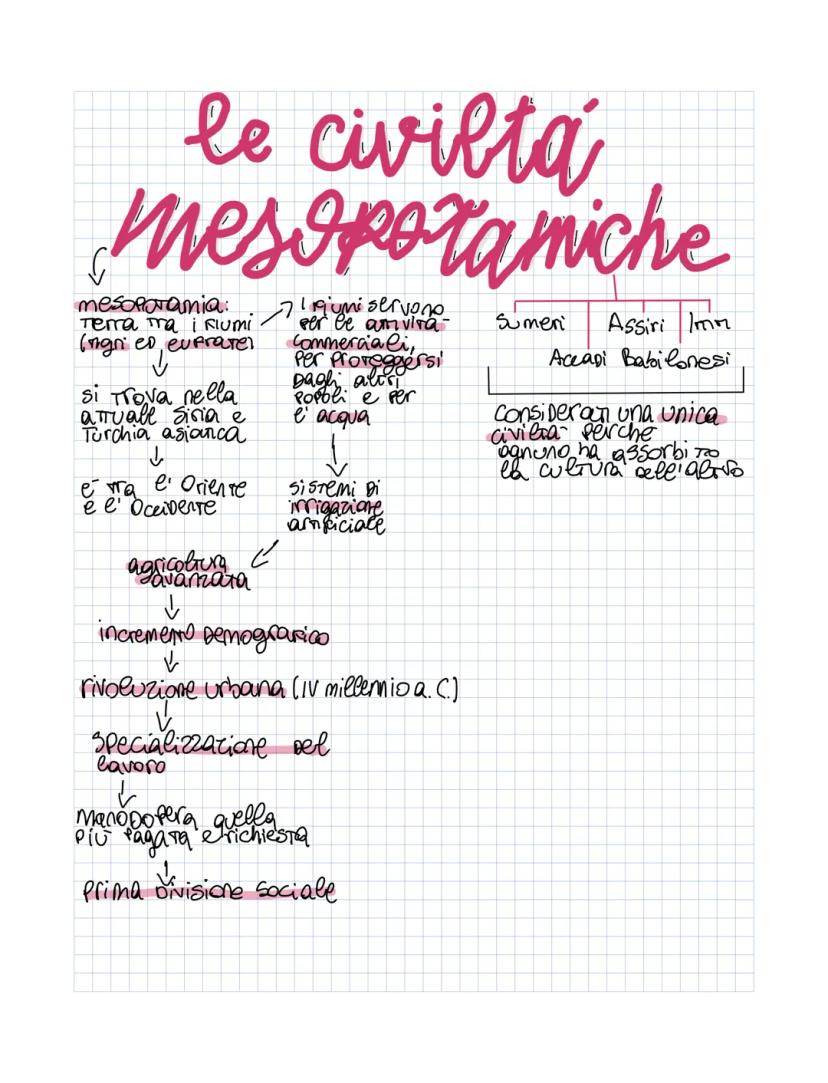 le civiltá
mesopotamiche
mesopotamia:
terra tra i fiumi
(tigri ed eufrate)
si trova nella
attuale Siria e
Turchia asiatica
e' tra l'Oriente
e l'Occidente
i fiumi servono
per le attività
commerciali,
per proteggersi
dagli altri
popoli e per
l'acqua
sistemi di
irrigazione
artificiale
agricoltura
avanzata
incremento demografico
rivoluzione urbana (IV millennio a.C.)
specializzazione del
lavoro
manodopera quella
più pagata e richiesta
prima divisione sociale
Sumeri Assiri
Accadi Babilonesi
considerati una unica
civiltà perché
ognuno ha assorbito
la cultura dell'altro